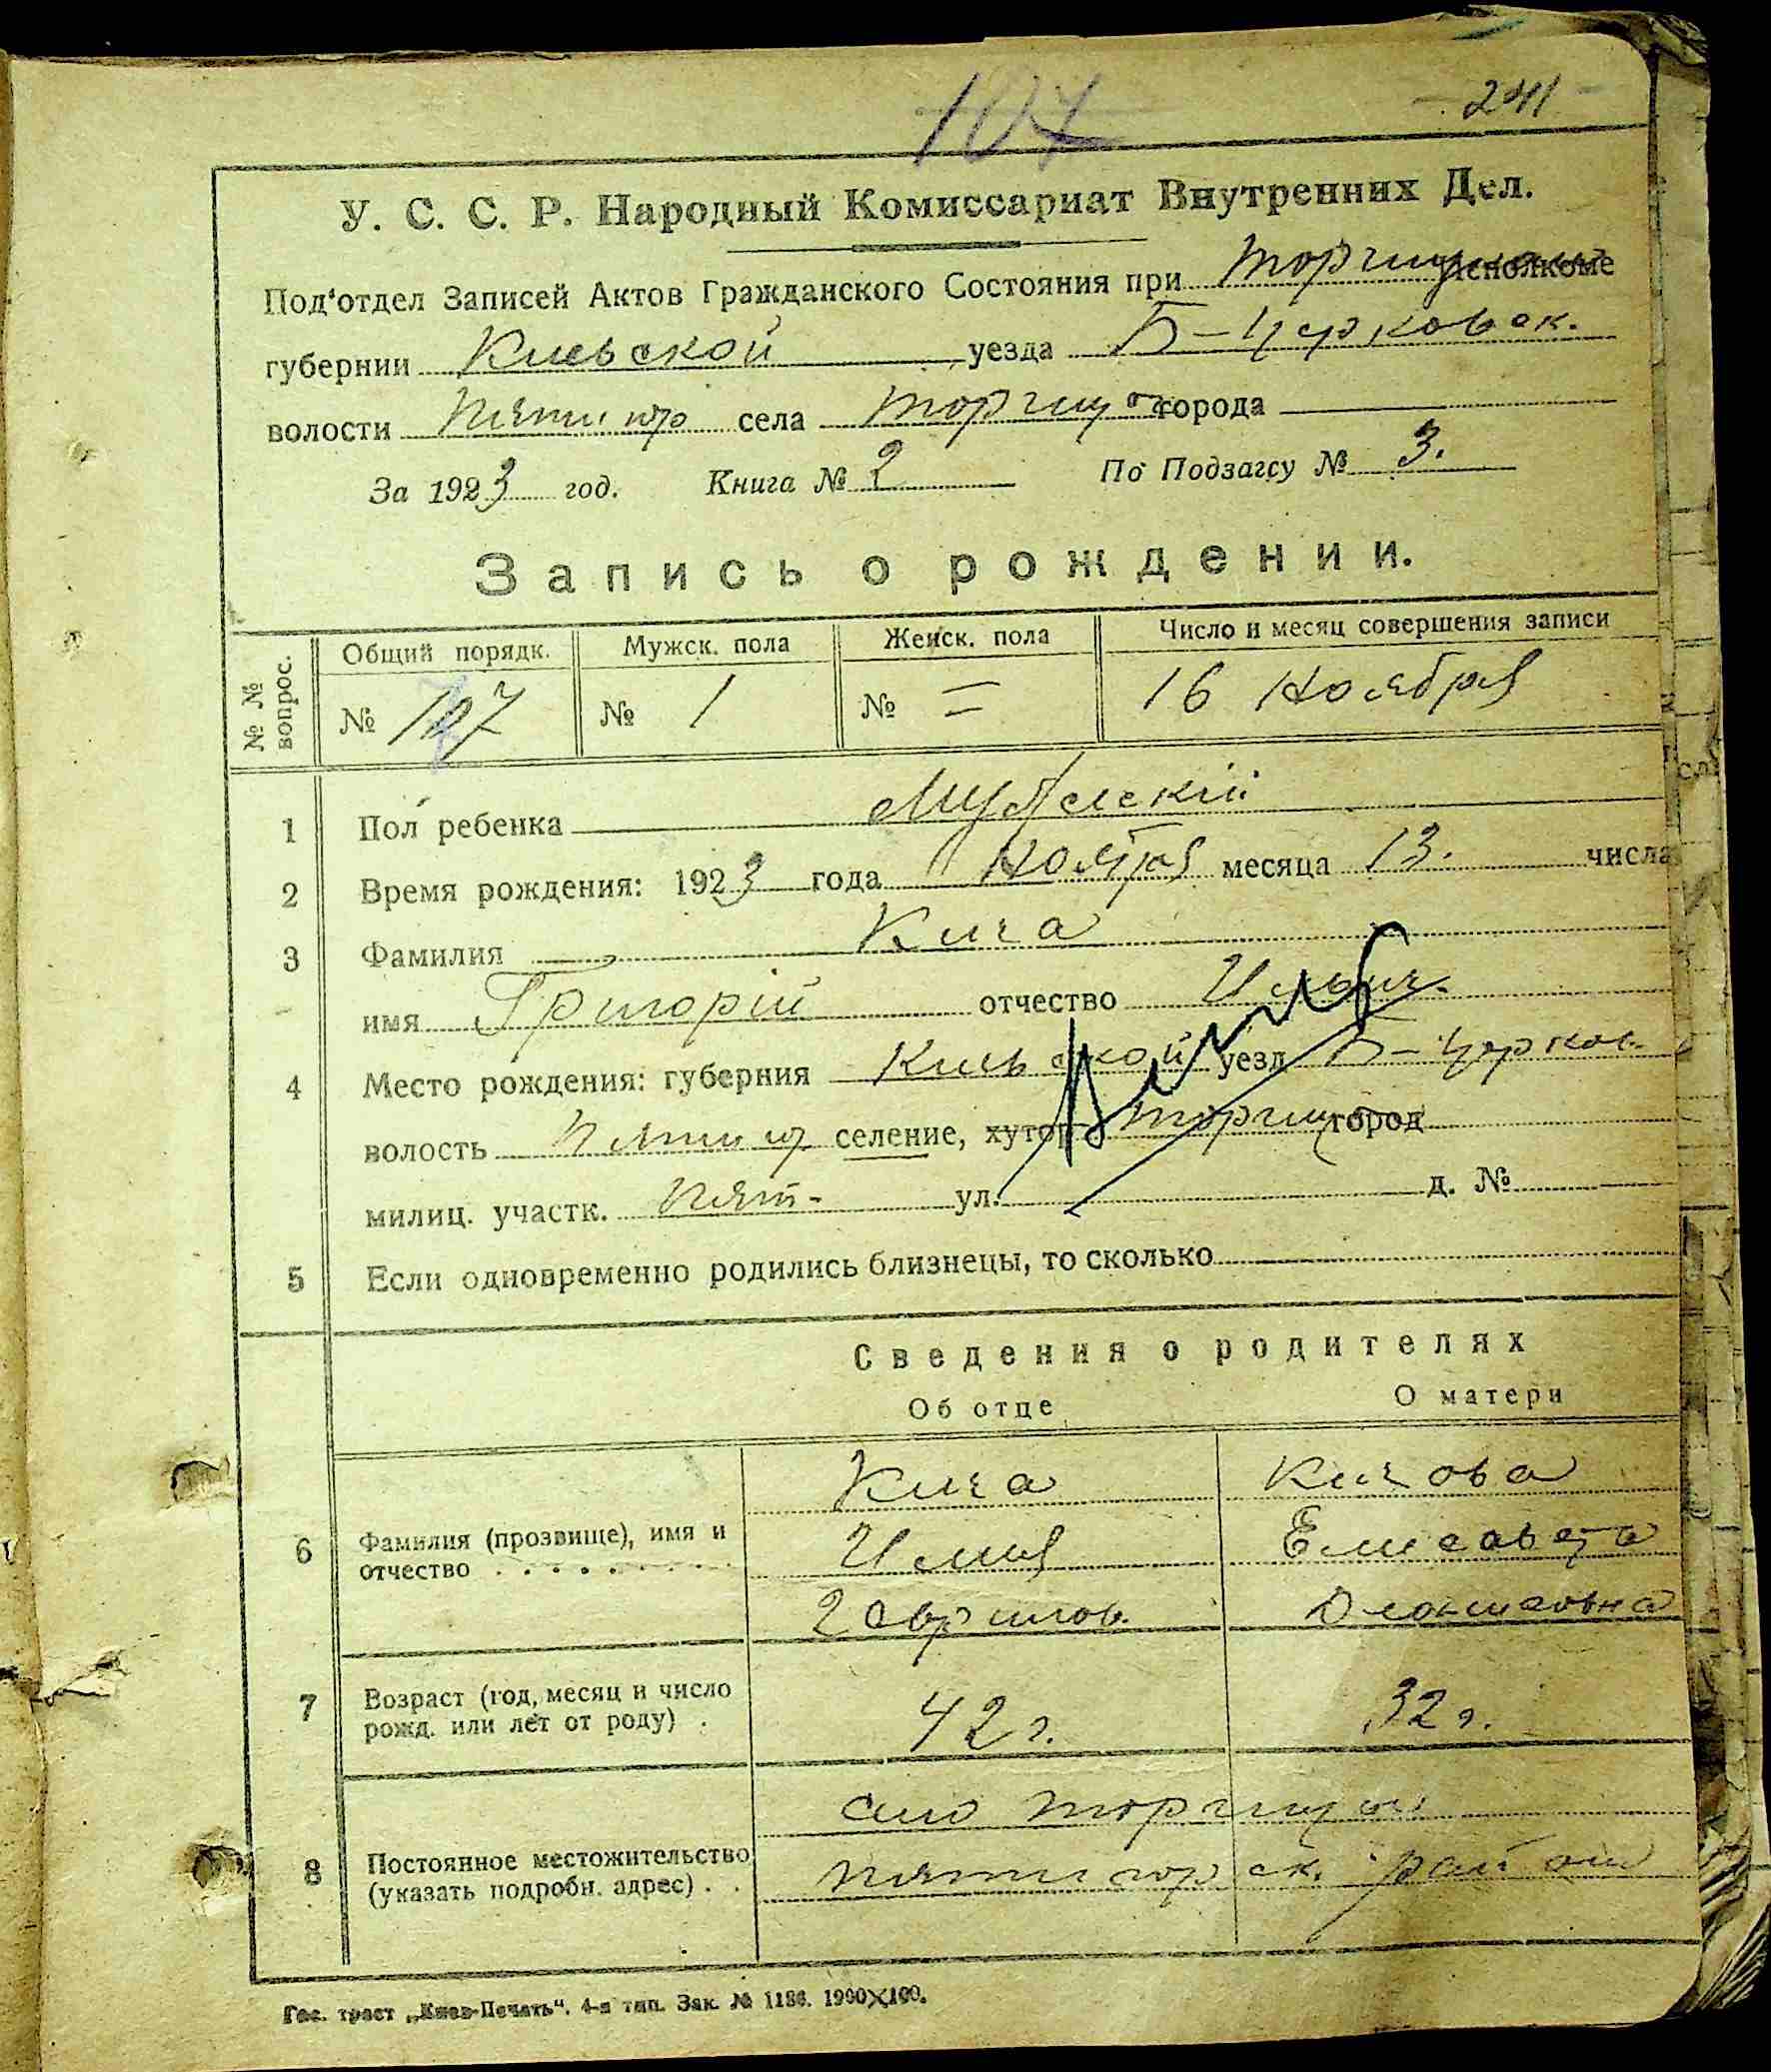 107
241
У. С. С. Р. Народный Комиссариат Внутренних Дел.
Под‘отдел Записей Актов Гражданского Состояния при Исполкоме
губернии Киевской уезда Б-Церковск.
волости Пятигор села города
За 1923 год. Книга № 2 По Подзагсу № 3.
Запись о рождении.
№ № вопрос. Общий порядк. Мужск. пола Женск. пола Число и месяц совершения записи
№ 107 № 1 № = 16 Ноября
1 Пол ребенка Мужескій
2 Время рождения: 1923 года Ноября месяца 13. числа
3 Фамилия Кича
имя Григорій отчество Ильич.
4 Место рождения: губерния Киевской уезд Б-Церков.
волость Пятигор селение, хутор город
милиц. участк. Пят- ул. д. №
5 Если одновременно родились близнецы, то сколько
Сведения о родителях
Об отце О матери
Кича Кичова
6 Фамилия (прозвище), имя и Илия Елисавета
отчество Гаврилов.
7 Возраст (год, месяц и число
рожд. или лет от роду) 42 г. 32 г.
село
8 Постоянное местожительство
(указать подробн. адрес) Пятигорск. район
Гос. трест „Киев-Печать“. 4-я тип. Зак. № 1186. 1900×100.